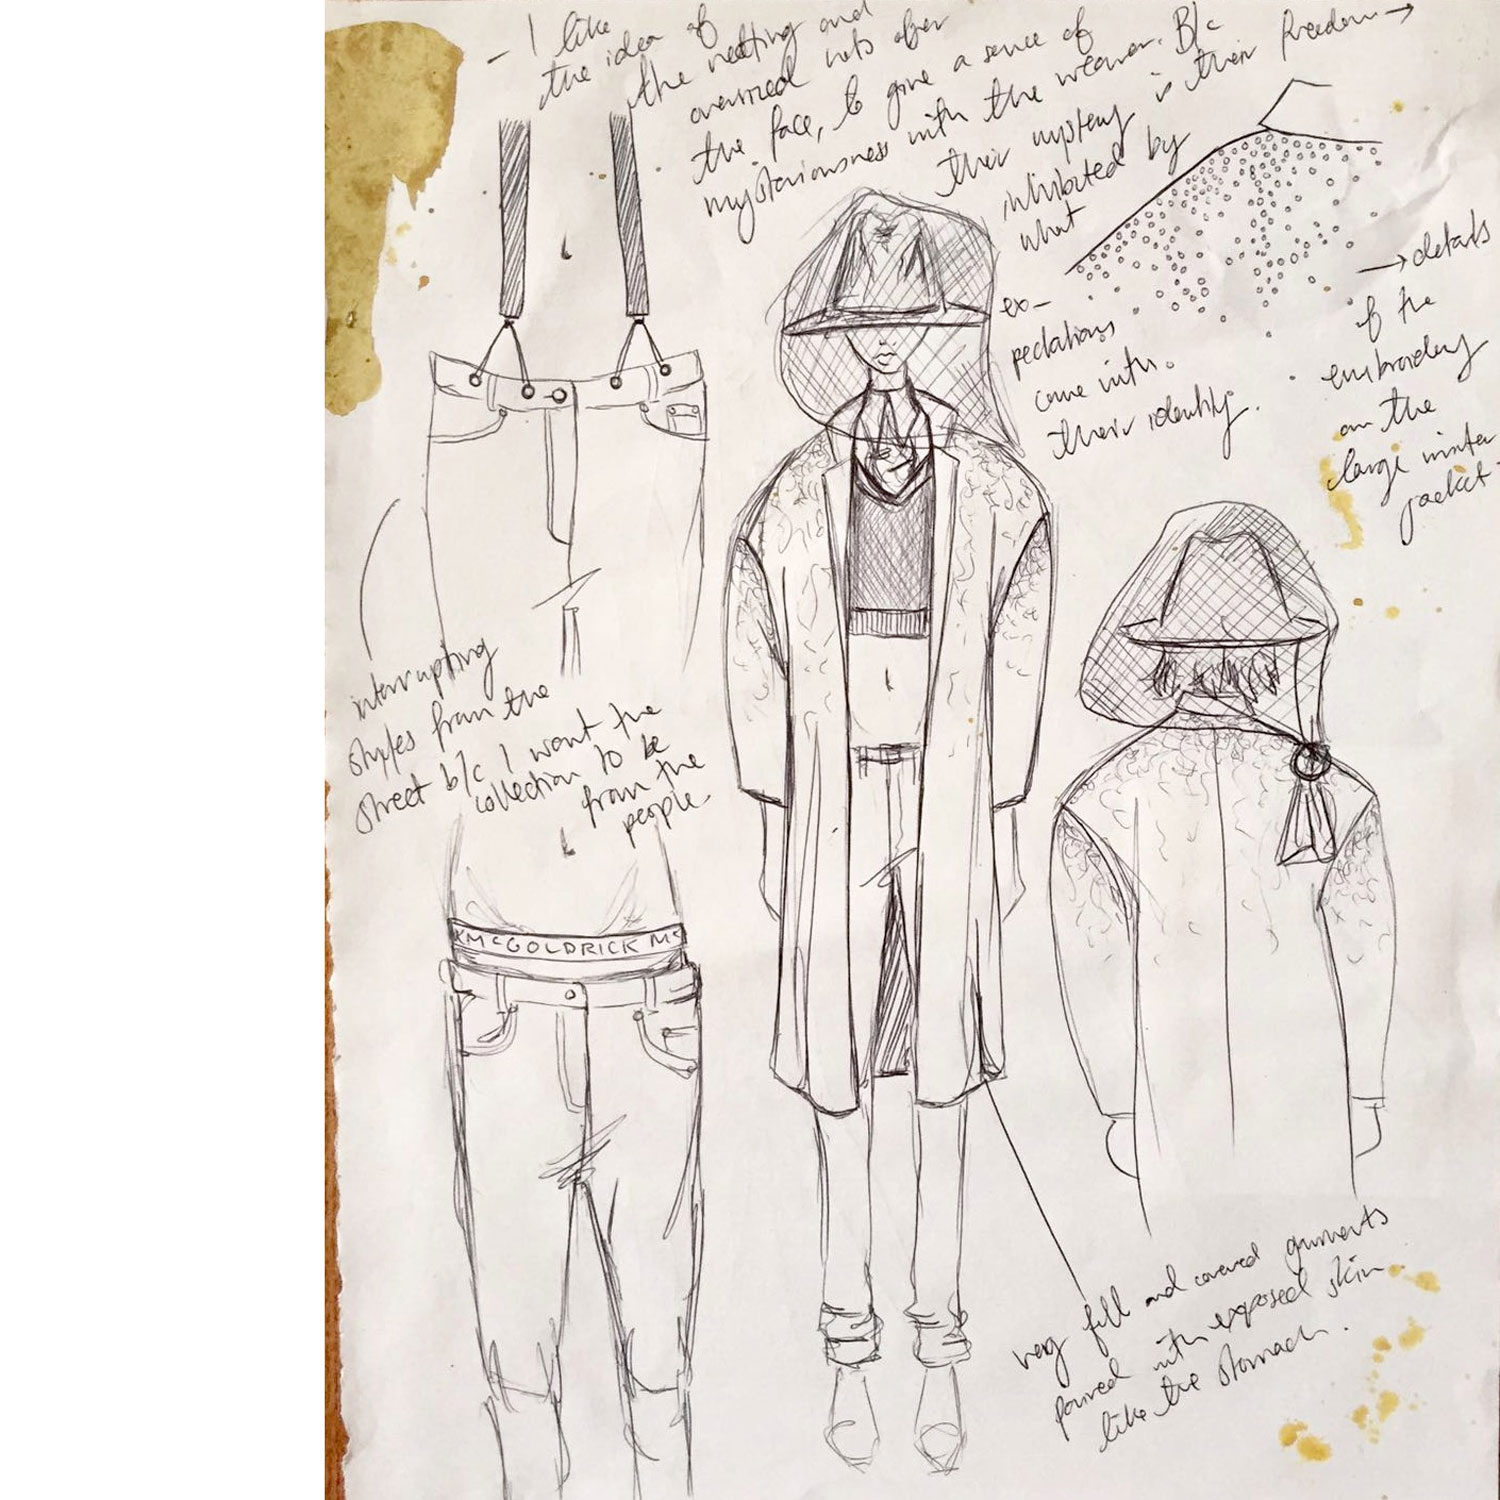 – I like
the idea of
the netting and
oversized hats over
the face, to give a sense of
mysteriousness with the wearer. B/c
their mystery is their freedom →
inhibited by
what
ex-
pectations
come with
their identity.
→ details
of the
embroidery
on the
large winter
jacket
interrupting
styles from the
street b/c I want the
collection to be
from the
people.
KMCGOLDRICK MC
very full and covered garments
paired with exposed skin
like the stomach.